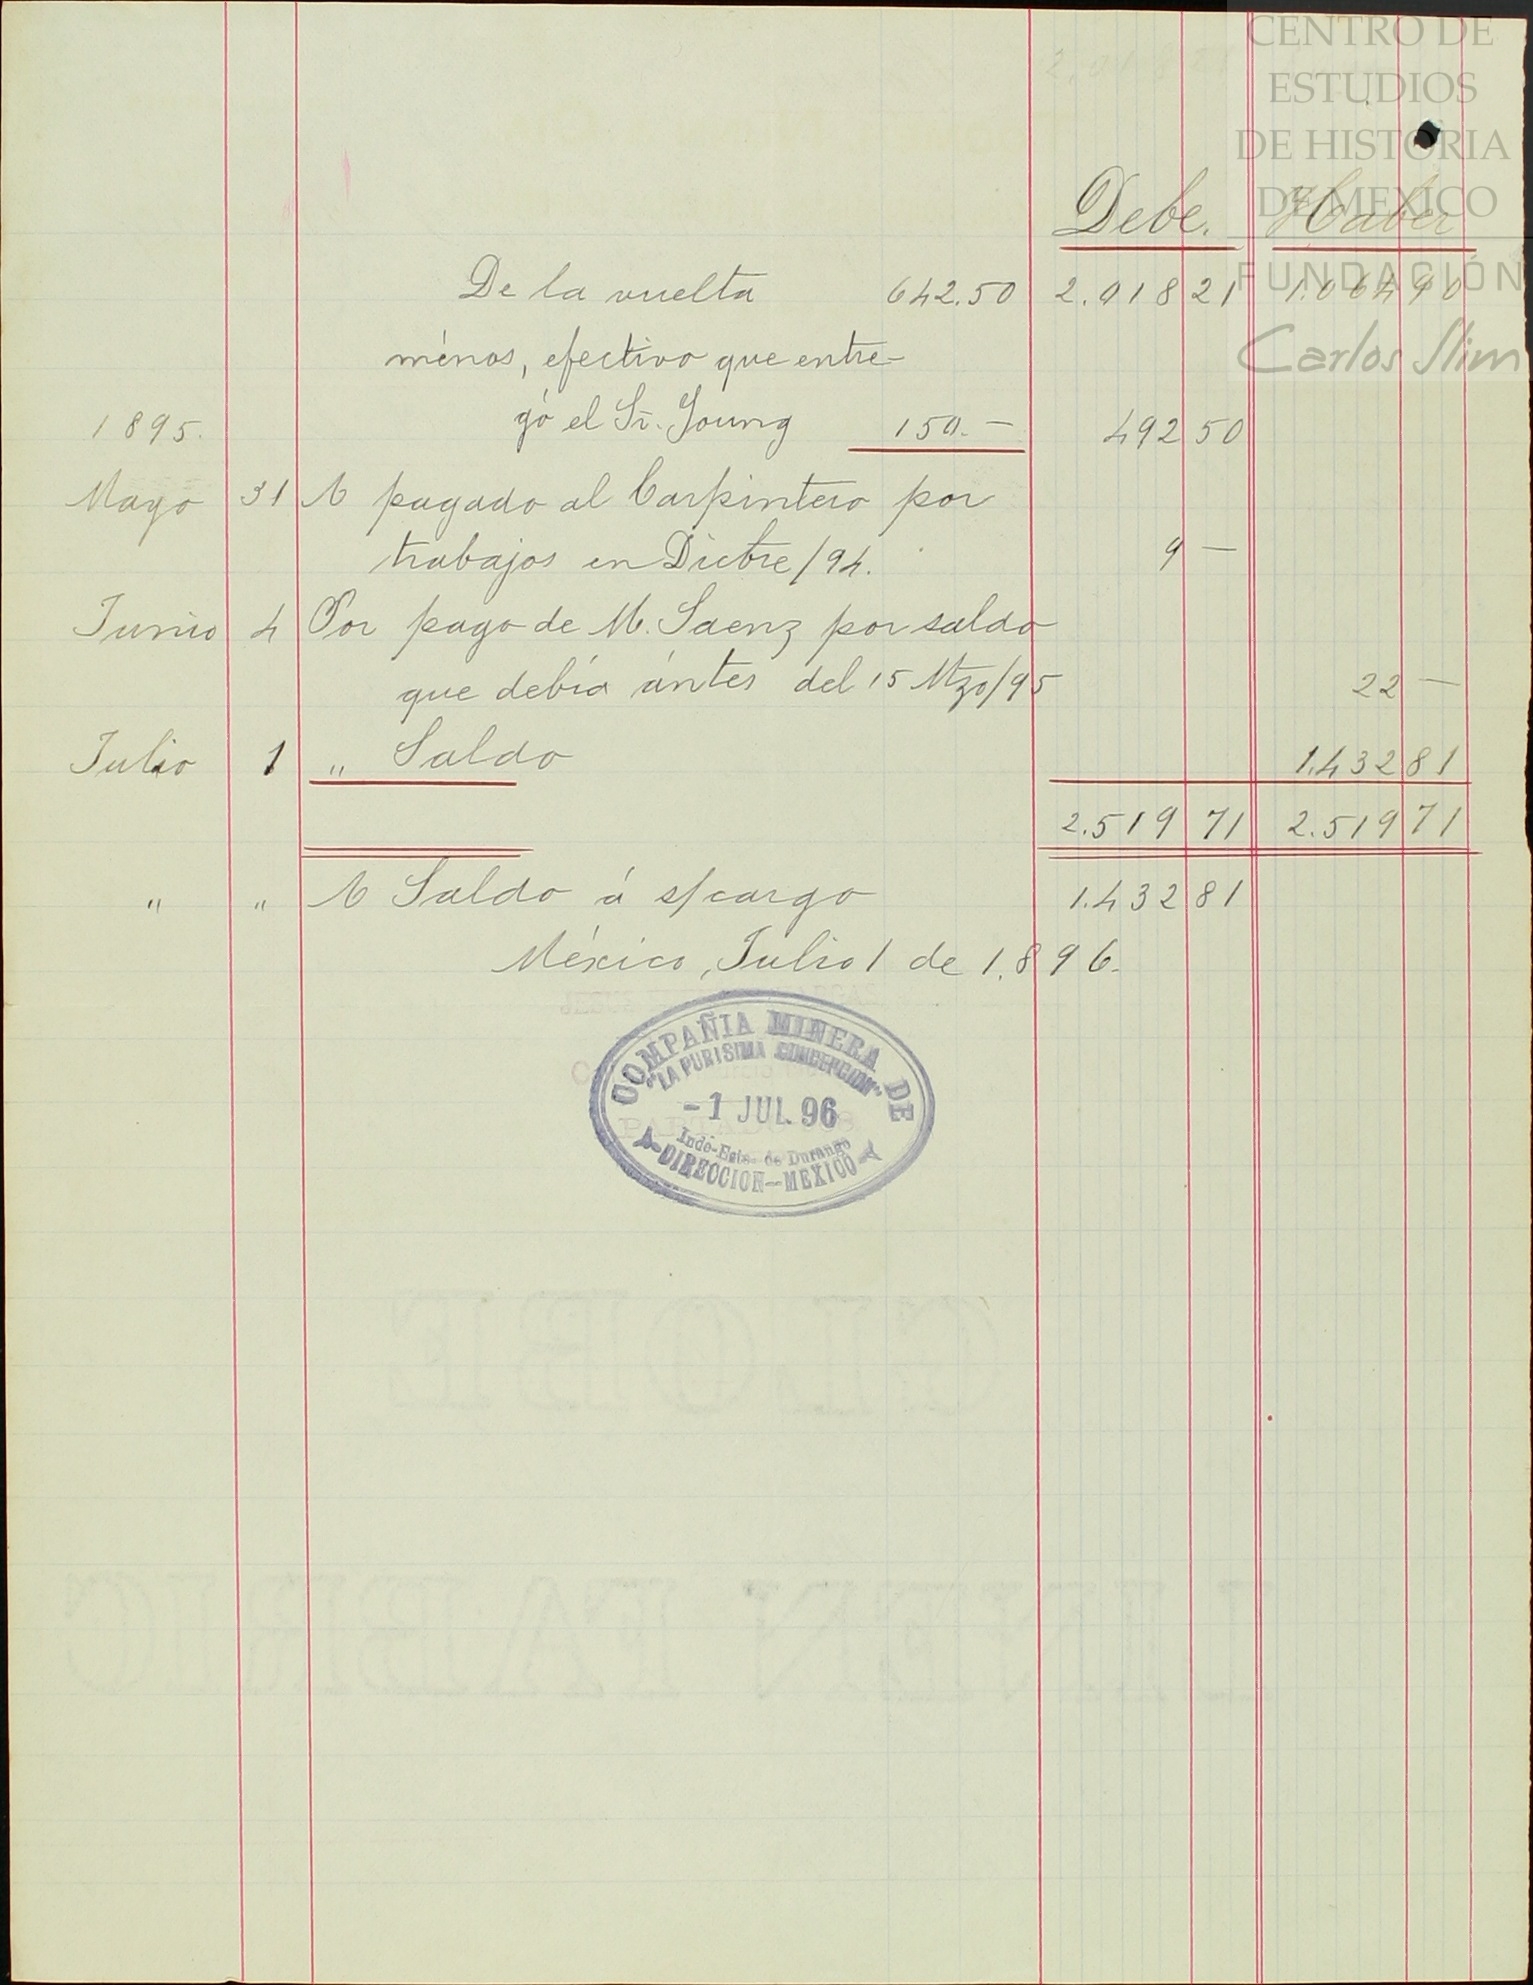 CENTRO DE
ESTUDIOS
DE HISTORIA
DE MEXICO
FUNDACIÓN
Carlos Slim
Debe. Haber
De la vuelta 642.50 2.018 21 1.064 90
ménos, efectivo que entre-
1895. gó el Sr. Young 150.— 492 50
Mayo 31 A pagado al Carpintero por
trabajos en Dicbre/94. 9 —
Junio 4 Por pago de M. Saenz por saldo
que debía ántes del 15 Mzo/95 22 —
Julio 1 " Saldo 1.432 81
2.519 71 2.519 71
" " A Saldo á s/cargo 1.432 81
México, Julio 1 de 1.896.
COMPAÑIA MINERA DE
"LA PURISIMA CONCEPCION"
-1 JUL. 96
Indé-Esto- de Durango
DIRECCION-MEXICO
GLOBE
LINEN FABRIC